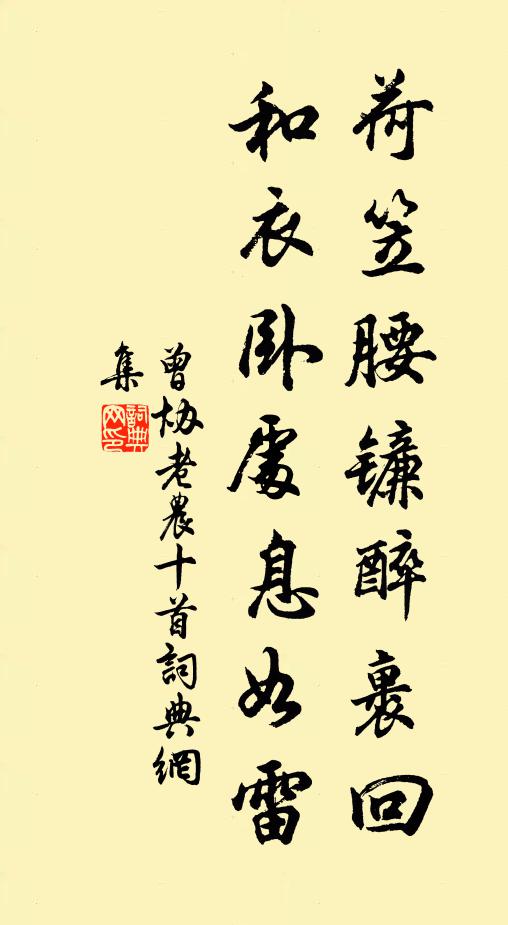 荷笠腰鐮醉裹回
和衣卧處息如雷
曾協老農十首詞典網
集
詞典網印